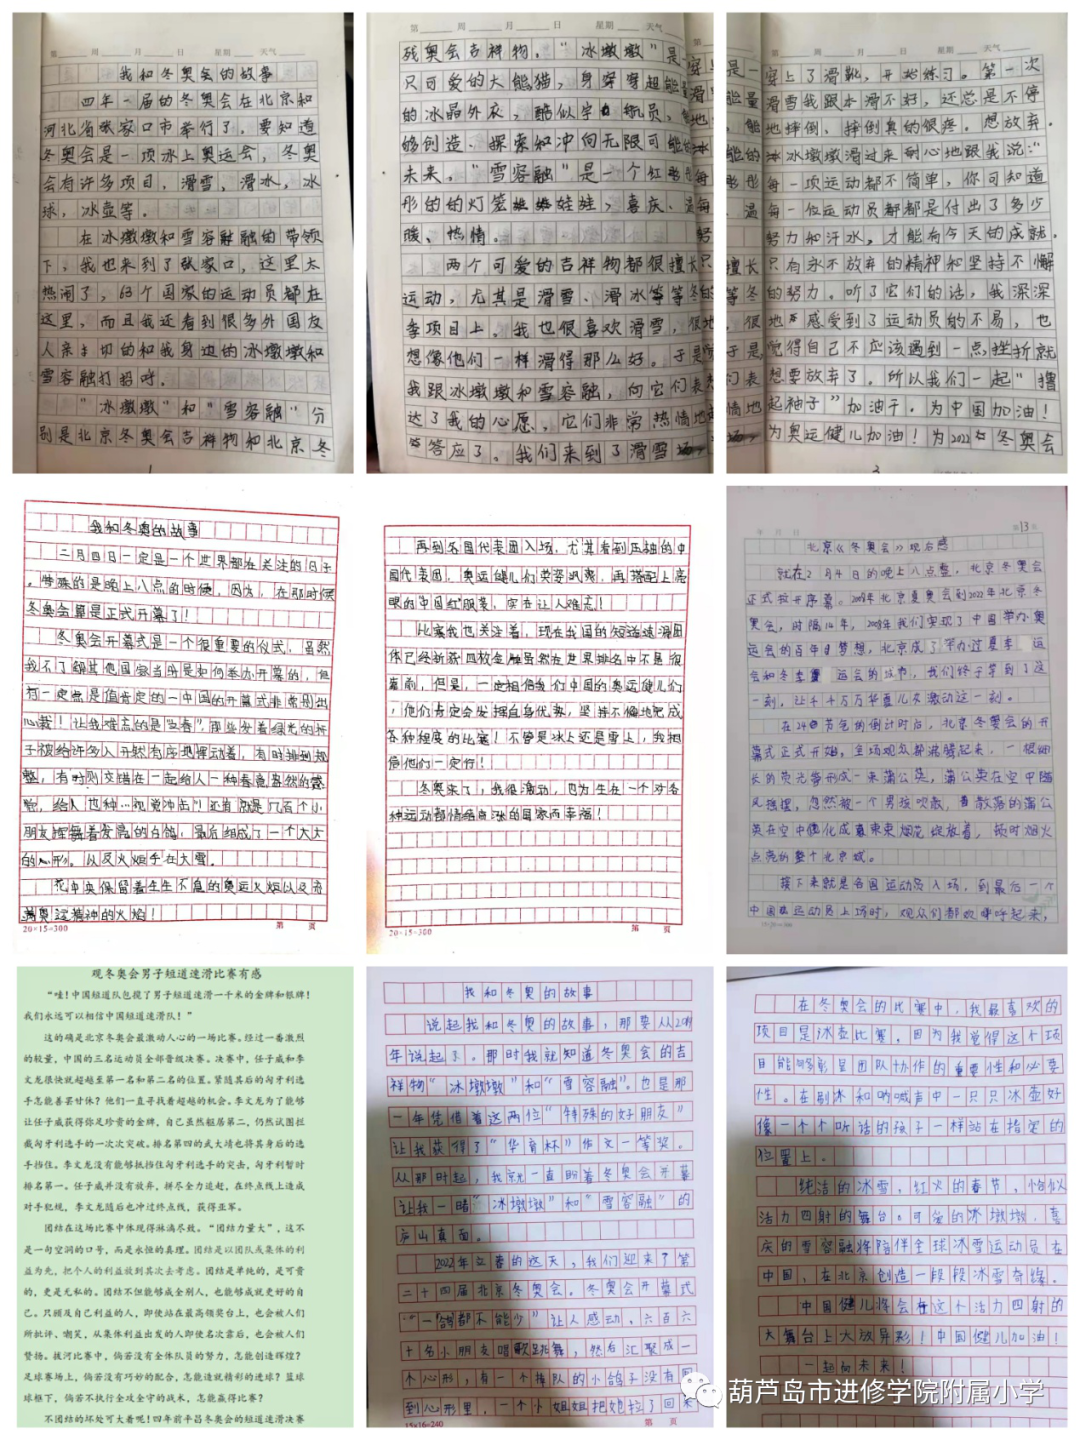 第 周 月 日 星期 天气
我和冬奥会的故事
四年一届的冬奥会在北京和
河北省张家口市举行了。要知道
冬奥会是一项冰上奥运会，冬奥
会有许多项目，滑雪，滑冰，冰
球，冰壶等。
在冰墩墩和雪容融的带领
下，我也来到了张家口，这里太
热闹了，63个国家的运动员都在
这里，而且我还看到很多外国友
人亲切的和我身边的冰墩墩和
雪容融打招呼。
“冰墩墩”和“雪容融”分
别是北京冬奥会吉祥物和北京冬
1
第 周 月 日 星期 天气
残奥会吉祥物。“冰墩墩”是一
只可爱的大熊猫，身穿穿超能量
的冰晶外衣，酷似宇航员，能
够创造、探索和冲向无限可能的
未来。“雪容融”是一个红彤
彤的的灯笼娃娃，喜庆、温
暖、热情。
两个可爱的吉祥物都很擅长
运动，尤其是滑雪、滑冰等等冬
季项目上。我也很喜欢滑雪，很
想像他们一样滑得那么好。于是
我跟冰墩墩和雪容融，向它们表
达了我的心愿，它们非常热情地
答应了。我们来到了滑雪场，
第 周 月 日 星期 天气
穿上了滑靴，开始练习。第一次
滑雪我跟本滑不好，还总是不停
地摔倒、摔倒真的很疼。想放弃。
冰墩墩滑过来耐心地跟我说：“
每一项运动都不简单，你可知道
每一位运动员都都是付出了多少
努力和汗水，才能有今天的成就。
只有永不放弃的精神和坚持不懈
的努力。听了它们的话，我深深
地感受到了运动员的不易，也
觉得自己不应该遇到一点挫折就
想要放弃了。所以我们一起“撸
起袖子”加油干。为中国加油！
为奥运健儿加油！为2022冬奥会
3
我和冬奥的故事
二月四日一定是一个世界都在关注的日子
。特殊的是晚上八点的时候，因为，在那时候
冬奥会算是正式开幕了！
冬奥会开幕式是一个很重要的仪式，虽然
我不了解其他国家当年是如何举办开幕的，但
有一定点是值肯定的—中国的开幕式非常别出
心裁！让我难忘的是“立春”，那些发着绿光的杆
子被给许多人开头有序地挥动着，有时排到规
整，有时则交错在一起给人一种春意盎然的感
觉，给人一种…视觉冲击！还有就是几百个小
朋友挥舞着发亮的白鸽，最后组成了一个大大
的心形。以及火炬手在大雪。
花中央保留着生生不息的奥运火炬以及充
满奥运精神的火焰！
20×15=300 第 页
再到各国代表团入场，尤其看到压轴的中
国代表团，奥运健儿们英姿飒爽，再搭配上亮
眼的“中国红”服装，实在让人难忘！
比赛我也关注着，现在我国的短道速滑团
体已经斩获四枚金融虽然在世界排名中不是很
靠前，但是，一定相信我们中国的奥运健儿们
，他们肯定会发挥自身优势，坚持不懈地完成
各种程度的比赛！不管是冰上还是雪上，我相
信他们一定行！
冬奥来了，我很激动，也为生在一个对各
种运动都情绪高涨的国家而幸福！
20×15=300 第 页
年 月 日 第13页
北京《冬奥会》观后感
就在2月4日的晚上八点整，北京冬奥会
正式拉开序幕。2008年北京夏奥会到2022年北京冬
奥会，时隔14年，2008年我们实现了中国举办奥
运会的百年梦想，北京成了举办过夏季运
会和冬季 运会的城市，我们终于等到了这
一刻，让千千万万华夏儿女激动这一刻。
在24节气的倒计时后，北京冬奥会的开
幕式正式开始，全场观众都沸腾起来，一根细
长的荧光棒形成一朵蒲公英，蒲公英在空中随
风摇摆，忽然被一个男孩吹散，散落的蒲公
英在空中僵化成束束烟花绽放着，顿时烟火
点亮的整个北京城。
接下来就是各国运动员入场，到最后一个
中国运动员上场时，观众们都欢呼起来，
观冬奥会男子短道速滑比赛有感
“哇！中国短道队包揽了男子短道速滑一千米的金牌和银牌！
我们永远可以相信中国短道速滑队！”
这的确是北京冬奥会最激动人心的一场比赛。经过一番激烈
的较量，中国的三名运动员全部晋级决赛。决赛中，任子威和李
文龙很快就超越至第一名和第二名的位置。紧随其后的匈牙利选
手怎能善罢甘休？他们一直寻找着超越的机会。李文龙为了能够
让任子威获得你足珍贵的金牌，自己虽然粗居第二，仍然试图拦
截匈牙利选手的一次次突破。排名第四的武大靖也将其身后的选
手挡住。李文龙没有能够抵挡住匈牙利选手的突击，匈牙利暂时
排名第一。任子威并没有放弃，拼尽全力追起，在终点线上造成
对手犯规，李文龙随后也冲过终点线，获得亚军。
团结在这场比赛中体现得淋漓尽致。“团结力量大”，这不
是一句空洞的口号，而是永恒的真理。团结是以团队或集体的利
益为先，把个人的利益放到其次去考虑。团结是单纯的，是可贵
的，更是无私的。团结不但能够成全别人，也能够成就更好的自
己。只顾及自己利益的人，即使站在最高领奖台上，也会被人们
所批评、嘲笑，从集体利益出发的人即使名次靠后，也会被人们
赞扬。拔河比赛中，倘若没有全体队员的努力，怎能创造辉煌？
足球赛场上，倘若没有巧妙的配合，怎能造就精彩的进球？篮球
球框下，倘若不执行全攻全守的战术，怎能赢得比赛？
不团结的坏处可大着呢！四年前平昌冬奥会的短道速滑决赛
我和冬奥的故事
说起我和冬奥的故事，那要从2019
年说起了。那时我就知道冬奥会的吉
祥物“冰墩墩”和“雪容融”。也是那
一年凭借着这两位“特殊的好朋友”
让我获得了“华育杯”作文一等奖。
从那时起，我就一直盼着冬奥会开幕
让我一睹“冰墩墩”和“雪容融”的
庐山真面。
2022年立春的这天，我们迎来了第
二十四届北京冬奥会。冬奥会开幕式
“一鸽都不能少”让人感动。六百六
十名小朋友唱歌跳舞，然后汇聚成一
个心形，有一个掉队的小鸽子没有回
到心形里，一个小姐姐把她拉了回来
15×16=240 第 页
在冬奥会的比赛中，我最喜欢的
项目是冰壶比赛。因为我觉得这个项
目能够彰显团队协作的重要性和必要
性。在刷冰和呐喊声中一只只冰壶好
像一个个听话的孩子一样站在指定的
位置上。
纯洁的冰雪，红火的春节，恰似
活力四射的舞台。可爱的冰墩墩，喜
庆的雪容融将陪伴全球冰雪运动员在
中国，在北京创造一段段冰雪奇缘。
中国健儿将会在这个活力四射的
大舞台上大放异彩！中国健儿加油！
一起向未来！
葫芦岛市进修学院附属小学